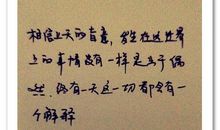 相信上天的旨意，发生在这世界
上的事情没有一样是出于偶
然，终有一天这一切都会有一
个解释